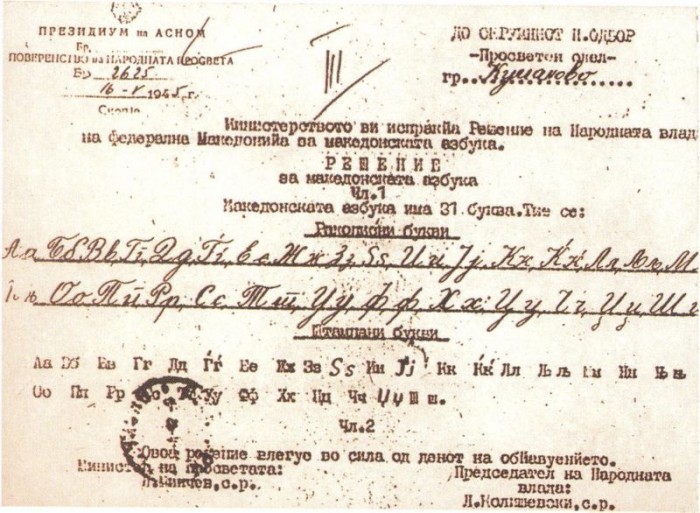 ПРЕЗИДИУМ на АСНОМ
Бр.
ПОВЕРЕНСТВО на НАРОДНАТА ПРОСВЕТА
Бр 2625
16-V 1945 г.
Скопје
III
ДО ОКРУЖНИОТ Н.ОДБОР
-Просветен одел-
гр. Куманово
Министерството ви испраќа Решение на Народната влад
на федерална Македонија за македонската азбука.
РЕШЕНИЕ
за македонската азбука
Чл.1
Македонската азбука има 31 буква. Тие се:
Ракописни букви
Аа Бб Вв Гг Дд Ѓѓ Ее Жж Зз Ѕѕ Ии Јј Кк Ќќ Лл Љљ М
Њњ Оо Пп Рр Сс Тт Уу Фф Хх Цц Чч Џџ Ш
Штампани букви
Аа Бб Вв Гг Дд Ѓѓ Ее Жж Зз Ѕѕ Ии Јј Кк Ќќ Лл Љљ Мм Нн Њњ
Оо Пп Рр Уу Фф Хх Цц Чч Џџ Шш.
Чл.2
Овоа решение влегуе во сила од денот на обнауението.
Министер на просветата:
Председател на Народната
влада:
Л.Колишевски,с.р.
с.р.